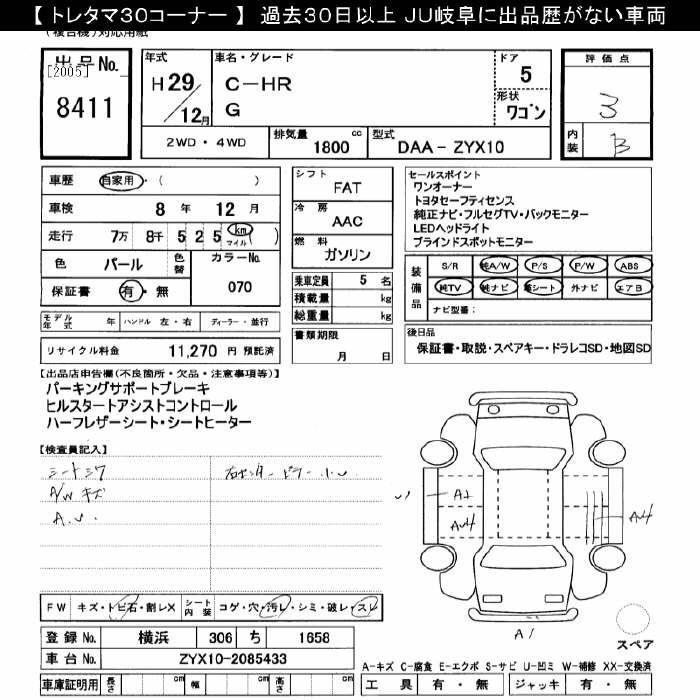 【 トレタマ30コーナー 】 過去30日以上 JU岐阜に出品歴がない車両
(複合機)対応用紙
出品No.
[2005]
8411
年式
H29
12月
車名・グレード
C-HR
G
ドア
5
形状
ワゴン
2WD・4WD
排気量
1800 cc
型式
DAA- ZYX10
評価点
3
内装
B
車歴 自家用・( )
車検 8 年 12 月
走行 7万 8千 5 2 5 km マイル ( )
色 パール
色替
カラーNo.
070
保証書 有・無
モデル年式 年 ハンドル 左・右 ディーラー・並行
リサイクル料金 11,270 円 預託済
シフト
FAT
冷房
AAC
燃料
ガソリン
乗車定員 5 名
積載量 kg
総重量 kg
書類期限
月 日
セールスポイント
ワンオーナー
トヨタセーフティセンス
純正ナビ・フルセグTV・バックモニター
LEDヘッドライト
ブラインドスポットモニター
装備品
S/R 純A/W P/S P/W ABS
純TV 純ナビ 革シート 外ナビ エアB
ナビ型番:
後日品
保証書・取説・スペアキー・ドラレコSD・地図SD
【出品店申告欄(不良箇所・欠品・注意事項等)】
パーキングサポートブレーキ
ヒルスタートアシストコントロール
ハーフレザーシート・シートヒーター
【検査員記入】
シートシワ
右センターピラー小U
A/W キズ
A.U.
A1
A4
A1
スペア
FW キズ・トビ石・割レX
シート内装 コゲ・穴・汚レ・シミ・破レ・スレ
登録No. 横浜 306 ち 1658
車台No. ZYX10-2085433
車庫証明用 長さ cm 幅 cm 高さ cm
A-キズ C-腐食 E-エクボ S-サビ U-凹ミ W-補修 XX-交換済
工具 有・無 ジャッキ 有・無